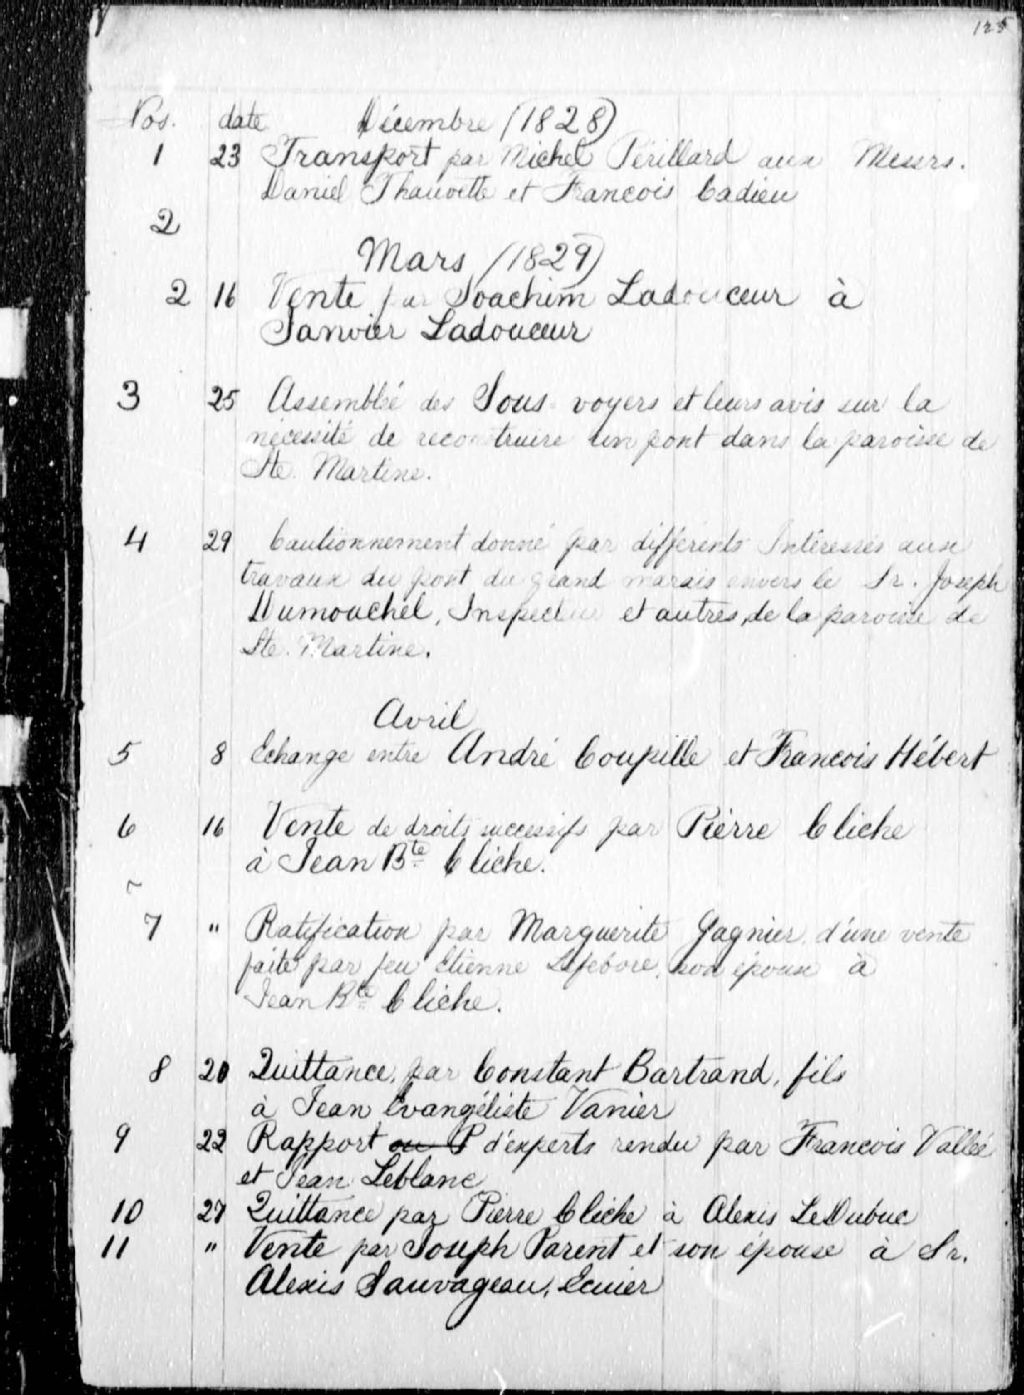 125
Nos. date Décembre (1828)
1 23 Transport par Michel Perillard aux Messrs.
Daniel Thauvette et Francois Cadieu
2
Mars (1829)
2 16 Vente par Joachim Ladouceur à
Janvier Ladouceur
3 25 Assemblée des Sous-voyers et leurs avis sur la
nécessité de reconstruire un pont dans la paroisse de
Ste. Martine.
4 29 Cautionnement donné par différents Intéressés aux
travaux du pont du grand marais envers le Sr. Joseph
Dumouchel, Inspecteur et autres, de la paroisse de
Ste. Martine.
Avril
5 8 Echange entre André Coupille et Francois Hébert
6 16 Vente de droits successifs par Pierre Cliche
à Jean Bte Cliche.
7 " Ratification par Marguerite Gagnier, d'une vente
faite par feu Etienne Lefebvre, son époux à
Jean Bte Cliche.
8 20 Quittance, par Constant Bartrand, fils
à Jean Evangéliste Vanier
9 22 Rapport ou P d'experts rendu par Francois Vallée
et Jean Leblanc
10 27 Quittance par Pierre Cliche à Alexis LeDubuc
11 " Vente par Joseph Parent et son épouse à Sr.
Alexis Sauvageau, Ecuier